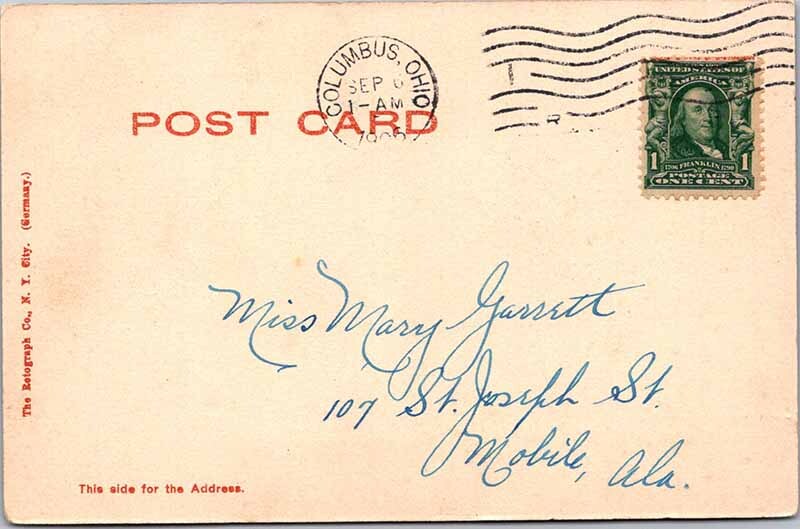 COLUMBUS, OHIO
SEP 6
1-AM
POST CARD
UNITED STATES OF
AMERICA
1 1706 FRANKLIN 1790 1
POSTAGE
ONE CENT
The Rotograph Co., N. Y. City. (Germany.)
Miss Mary Garrett
107 St. Joseph St.
Mobile, Ala.
This side for the Address.